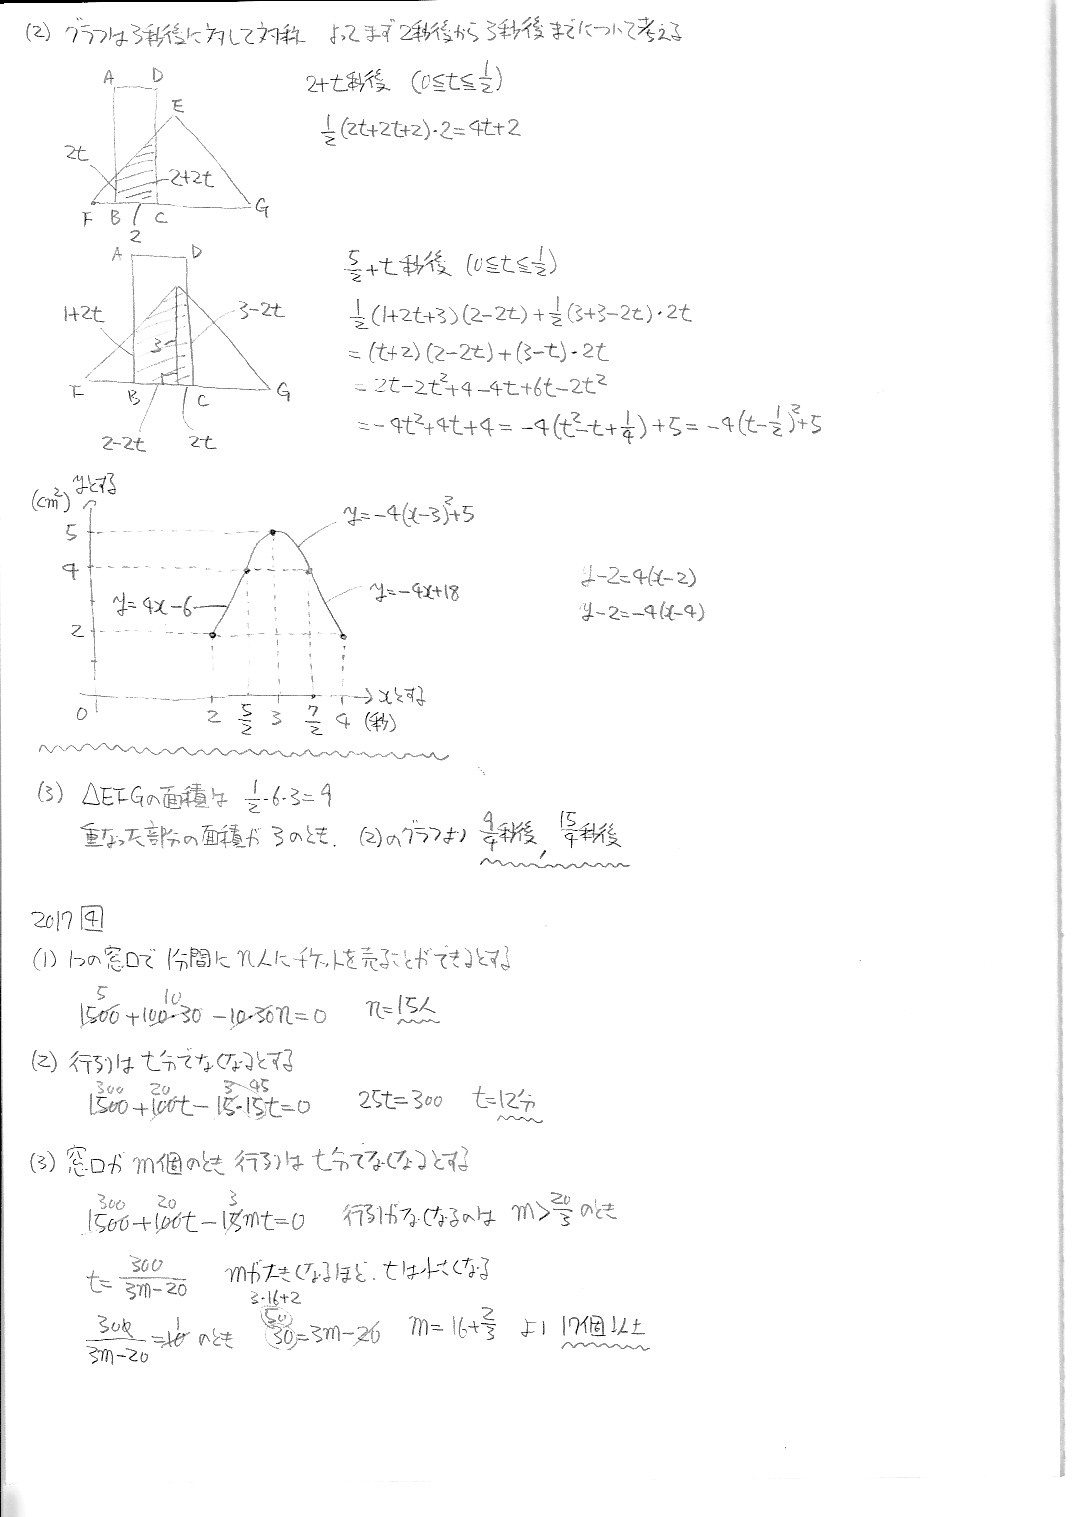 (2) グラフは3秒後に対して対称 よってまず2秒後から3秒後までについて考える
A D
E
2t
2+2t
F B C G
2
2+t秒後 (0≦t≦1/2)
1/2(2t+2t+2)・2=4t+2
A D
1+2t
3-2t
3
F B C G
2-2t 2t
5/2+t秒後 (0≦t≦1/2)
1/2(1+2t+3)(2-2t)+1/2(3+3-2t)・2t
=(t+2)(2-2t)+(3-t)・2t
=2t-2t²+4-4t+6t-2t²
=-4t²+4t+4=-4(t²-t+1/4)+5=-4(t-1/2)²+5
(cm²) yとする
5
4
2
0
y=-4(x-3)²+5
y=4x-6
y=-4x+18
2 5/2 3 7/2 4 (秒)
xとする
y-2=4(x-2)
y-2=-4(x-4)
(3) △EFGの面積は 1/2・6・3=9
重なった部分の面積が 3のとき、(2)のグラフより 9/4秒後, 15/4秒後
2017 4
(1) 1つの窓口で 1分間に n人にチケットを売ることができるとする
5 10
1500+100・30-10・30n=0 n=15人
(2) 行列は t分でなくなるとする
300 20 3 45
1500+100t-15・15t=0 25t=300 t=12分
(3) 窓口が m個のとき 行列は t分でなくなるとする
300 20 3
1500+100t-15mt=0 行列がなくなるのは m>20/3 のとき
t=300/3m-20 mが大きくなるほど、tは小さくなる
3・16+2
50
300/3m-20=10 のとき 30=3m-20 m=16+2/3 より 17個以上